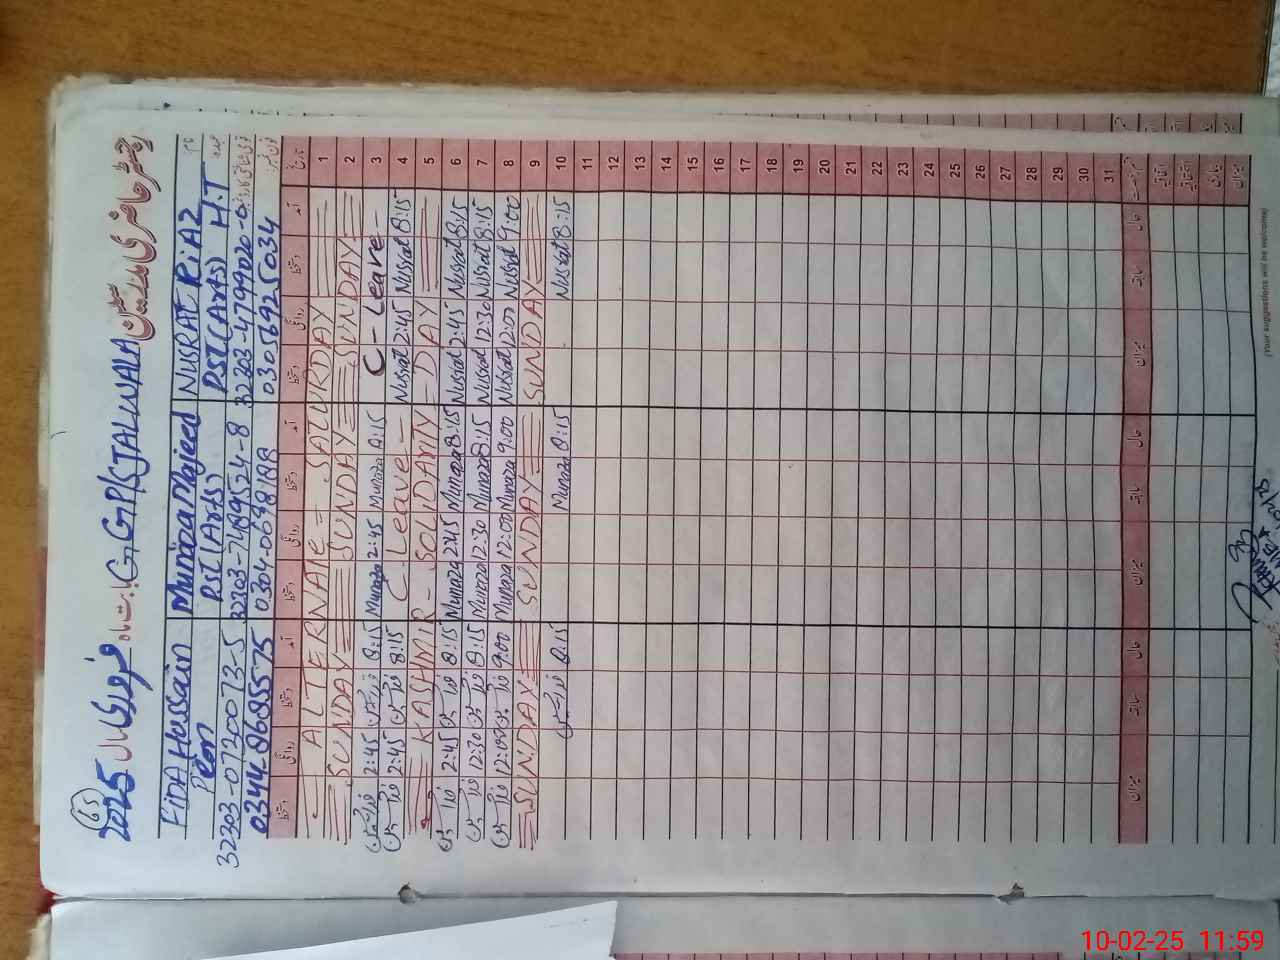 65
رجسٹر حاضری مدرسین GGPS JALWALA بابت ماہ فروری سال 2025
نام NUSRAT RiAZ Munaza Majeed FiDA Hussain
عہدہ PST (Arts) H.T PST (Arts) Peon
32203-4799020-0 32203-7489524-8 32203-0720073-5
فون نمبر: 03056925034 03442685575
تاریخ آمد دستخط روانگی دستخط آمد دستخط روانگی دستخط آمد دستخط روانگی دستخط
1 ALTERNATE - SATURDAY
2 SUNDAY SUNDAY SUNDAY
3 C-Leave- 8:15 Munaza 2:45 Munaza 8:15 2:45
4 8:15 Nusrat 2:45 Nusrat C-Leave- 8:15 2:45
5 KASHMIR - SOLIDARITY - DAY
6 8:15 Nusrat 2:45 Nusrat 8:15 Munaza 2:45 Munaza 8:15 2:45
7 8:15 Nusrat 12:30 Nusrat 8:15 Munaza 12:30 Munaza 8:15 12:30
8 9:00 Nusrat 12:00 Nusrat 9:00 Munaza 12:00 Munaza 9:00 12:00
9 SUNDAY SUNDAY SUNDAY
10 8:15 Nusrat 8:15 Munaza 8:15
11
12
13
14
15
16
17
18
19
20
21
22
23
24
25
26
27
28
29
30
31
حال سابقہ میزان حال سابقہ میزان حال سابقہ میزان
اتفاقیہ
بیماری
میزان
(Your suggestions will be welcome)
10-02-25 11:59